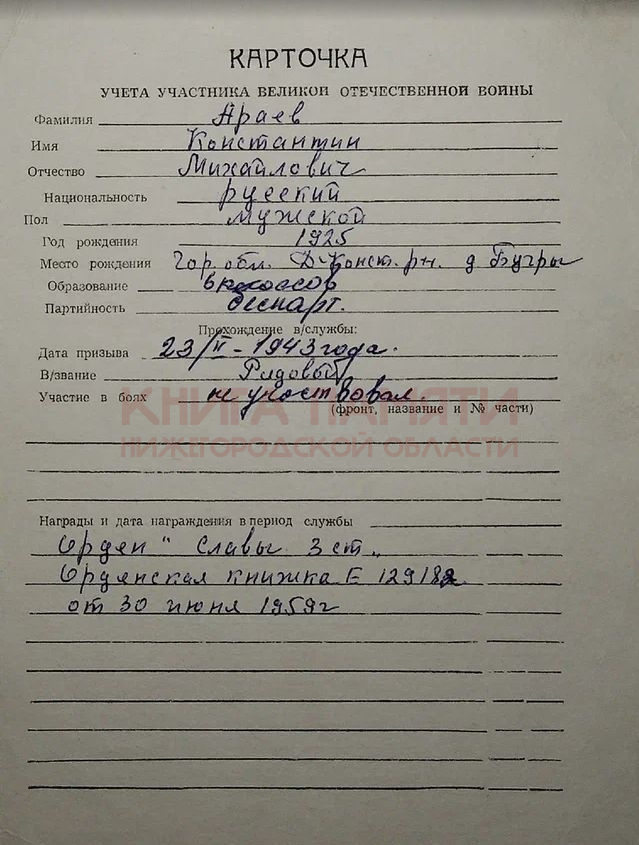 КАРТОЧКА
УЧЕТА УЧАСТНИКА ВЕЛИКОЙ ОТЕЧЕСТВЕННОЙ ВОЙНЫ
Фамилия Араев
Имя Константин
Отчество Михайлович
Национальность русский
Пол мужской
Год рождения 1925
Место рождения Гор. обл. Д-Конст. рн. д Бугры
Образование
Партийность беспарт.
Прохождение в/службы:
Дата призыва 23/II-1943 года.
В/звание Рядовой
Участие в боях не участвовал.
(фронт, название и № части)
КНИГА ПАМЯТИ
НИЖЕГОРОДСКОЙ ОБЛАСТИ
Награды и дата награждения в период службы
Орден "Славы 3 ст"
Орденская книжка Е
от 30 июня 1959г